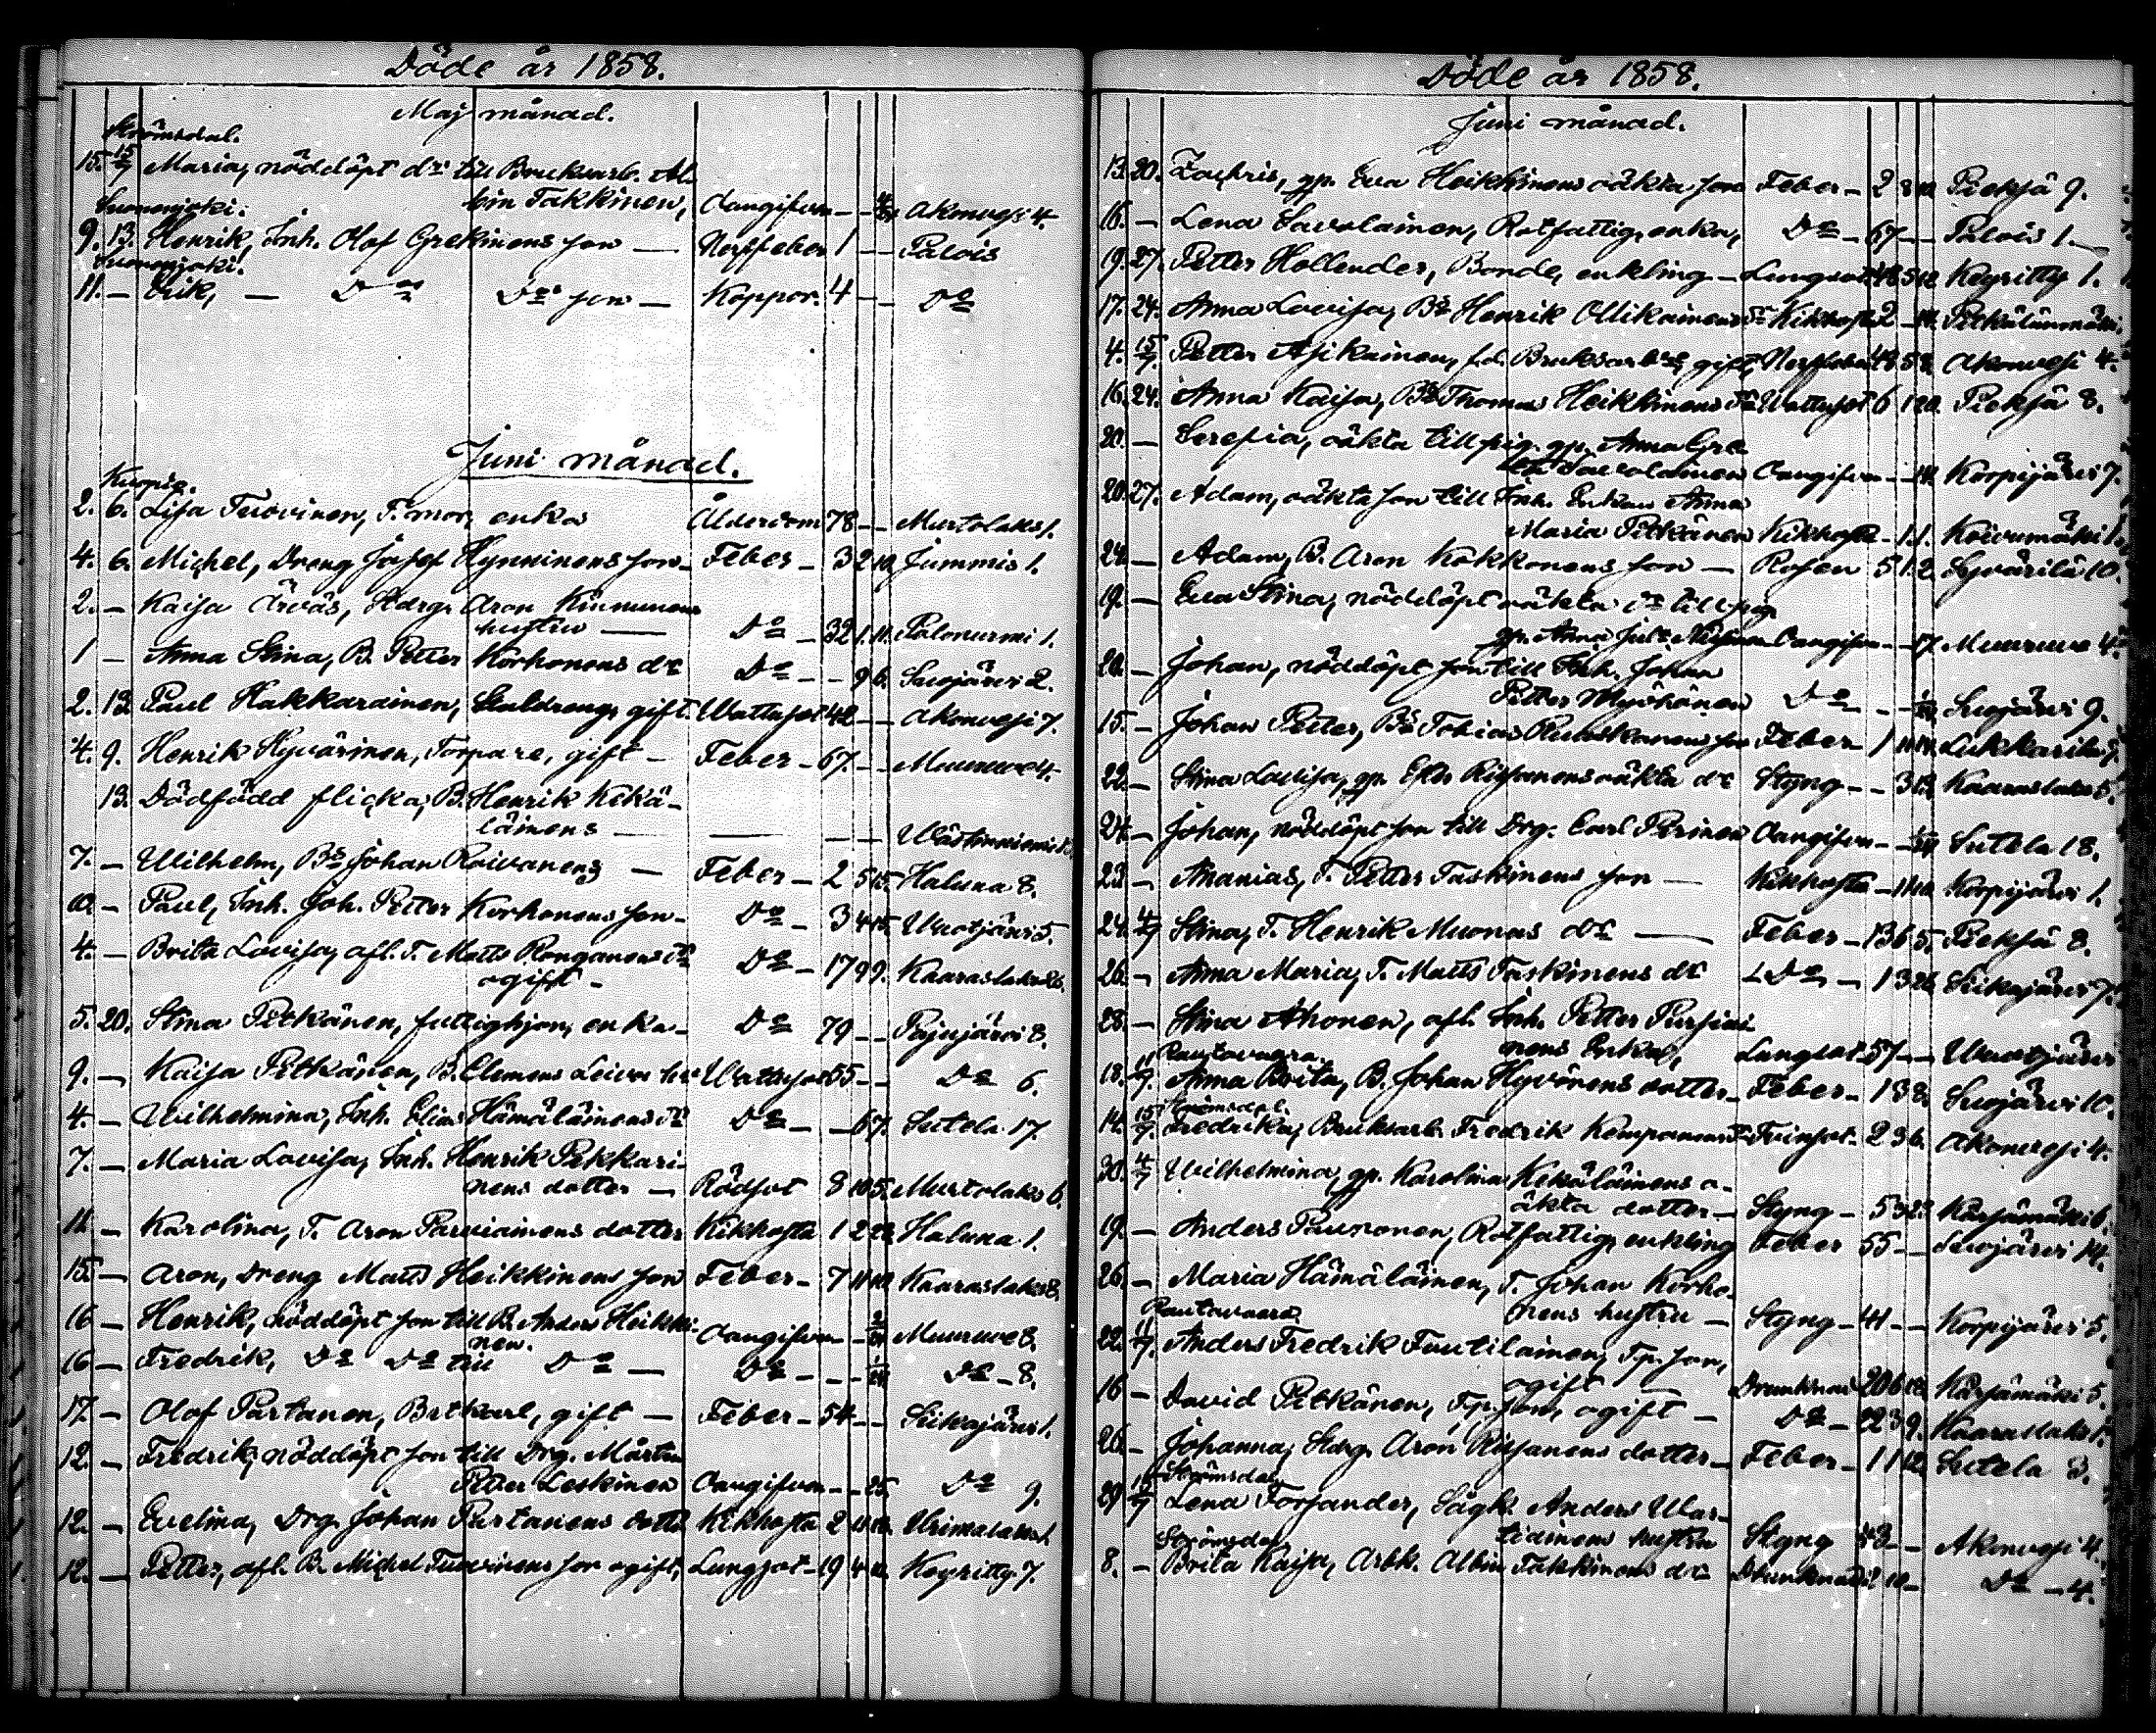 Döde år 1858.
Maj månad.
Strömsdal.
15. 15/7 Maria, nöddöpt dr till Bruksarb. Al-
bin Takkinen, Oangifven — — Akonvesi 4.
Suonenjoki.
9. 13. Henrik, Inh. Olof Grekinens son — Nerffeber 1 — — Palois
Suonenjoki.
11. — Erik, — Do Do son — Koppor. 4 — — Do
Juni månad.
Kuopio.
2. 6. Lisa Turvinen, T. mor, enka Ålderdom 78 — — Murtolaks 1.
4. 6. Michel, Dreng Josef Hynninens son — Feber — 3 2 10. Jummis 1.
2. — Kaisa Ärväs, Stdrg. Aron Kinnunens
hustru — Do — 32 1. 11. Palonurmi 1.
1 — Anna Stina, B. Petter Korhonens dr Do — — 9 6. Suojärvi 2.
2. 13. Paul Hakkarainen, Staldreng, gift. Wattusot 42 — — Akonvesi 7.
4. 9. Henrik Hyvärinen, Torpare, gift — Feber — 67. — — Muuruve 4.
13. Dödfödd flicka, B. Henrik Kekä-
läinens — — — —
7. — Wilhelm, Bs Johan Roivanens — Feber — 2 5 15. Haluna 8.
10. — Paul, Inh. Joh. Petter Korhonens son — Do — 3 4 15. Wuotjärvi 5.
4. — Brita Lovisa, afl. T. Matts Ronganens dr
ogift — Do — 17 9 9. Kaaraslaks
5. 20. Stina Pitkänen, fattighjon, enka — Do 79 — — Pajujärvi 8.
9. — Kaisa Pitkänen, B. Clemens Leivos hu Wattusot 55 — — Do 6.
4. — Wilhelmina, Inh. Elias Hämäläinens dr Do — — 6 7. Sutela 17.
7. — Maria Lovisa, Inh. Henrik Pekkari-
nens dotter — Rödsot 8 10 5. Murtolaks 6.
11. — Karolina, T. Aron Parviainens dotter Kikhosta 1 2 23. Haluna 1.
15. — Aron, Dreng Matts Heikkinens son Feber — 7 11 10. Kaaraslaks 8.
16 — Henrik, nöddöpt son till B. Anders Heikki-
nen. Oangifven — — Muuruve 8.
16 — Fredrik, Do Do till Do — Do — — — Do — 8.
17. — Olof Partanen, Btkarl, gift — Feber — 54 — — Siikajärvi 1.
12. — Fredrik, nöddöpt son till Drg. Mårten
Petter Leskinen Oangifven — — 25. Do 9.
12. — Evelina, Drg. Johan Partanens dotter Kikhosta 2 11 12.
12. — Petter, afl. B. Michel Turvinens son ogift, Lungsot — 19 4 12. Keyritty 7.
Döde år 1858.
Juni månad.
13. 20. Zachris, gp. Eva Heikkinens oäkta son Feber — 2 8 12. Pieksä 9.
16. — Lena Savolainen, Rotfattig, enka, Do — 67 — — Palois 1.
19. 27. Petter Hollender, Bonde, enkling — Lungsot 48 5 12. Keyritty 1.
17. 24. Anna Lovisa, Bs Henrik Ollikainens dr Kikhosta 2 — 14. Pitkälänmäki
4. 15/7. Petter Asikainen, f.d. Bruksarb., gift, Nerffeber 48 5 8. Akonvesi 4.
16. 24. Anna Kaisa, Bs Thomas Heikkinens dr Wattusot 6 1 20. Pieksä 8.
20. — Serefia, oäkta till pig. gp. Anna Gre-
ta Savolainen Oangifven — — 14. Korpijärvi 7.
20. 27. Adam, oäkta son till Inh. Enkan Anna
Maria Pitkänen Kikhosta — 1. 1. Koivumäki 1.
24. — Adam, B. Aron Kokkonens son — Rosen 5 1. 2. Syvärilä 10.
19. — Eva Stina, nöddöpt oäkta dr till pig.
gp. Anna Jul. Oangifven — — 17. Muuruve 4.
20. — Johan, nöddöpt son till Inh. Johan
Petter Myöhänen Do — — — Suojärvi 9.
15. — Johan Petter, Bs Tobias Ruuskanens son Feber — 1 11 14. Lukkarila 9.
22. — Stina Lovisa, gp. Esth. Riisanens oäkta dr Styng — — 3 13. Kaaraslaks 5.
24. — Johan, nöddöpt son till Drg. Carl Pirinen Oangifven — — Sutela 18.
23. — Ananias, T. Petter Taskinens son — Kikhosta — 11 10. Korpijärvi 1.
24. 4/7 Stina, T. Henrik Muonas dr — Feber — 13 6 5. Pieksä 8.
26. — Anna Maria, T. Matts Taskinens dr Do — 1 3 26. Siikajärvi 7.
28. — Stina Ahonen, afl. Inh. Petter Pursiai-
nens Enka, Lungsot 57 — — Wuotjärvi
Rautavaara.
18. 11/7. Anna Brita, B. Johan Hyvönens dotter — Feber — 1 3 8. Suojärvi 10.
Strömsdal.
14. 15/7. Fredrika, Bruksarb. Fredrik Kompanens dr Tvinsot — 2 3 6. Akonvesi 4.
30. 4/7 Wilhelmina, gp. Karolina Kekäläinens o-
äkta dotter — Styng — 5 3 23. Karjämäki 6.
19. — Anders Paunonen, Rotfattig, enkling Feber 55 — — Suojärvi 14.
26. — Maria Hämäläinen, T. Johan Korho-
nens hustru — Styng — 41 — — Korpijärvi 5.
Rautavaara.
22. 11/7. Anders Fredrik Tuutilainen, Tp. son,
ogift — Drunknad 20 6 18. Karjämäki 5.
16 — David Pitkänen, Tp. son, ogift — Do — 22 3 9. Kaaraslaks 1.
26. — Johanna, Stdrg. Aron Riisanens dotter — Feber — 1 1 12. Sutela 3.
Strömsdal.
29. Lena Forsander, Sågk. Anders War-
tiainens hustru Styng — — Akonvesi 4.
Strömsdal
8. — Brita Kaisa, Arbk. Albin Takkinens dr Drunknad 10 — Do — 4.